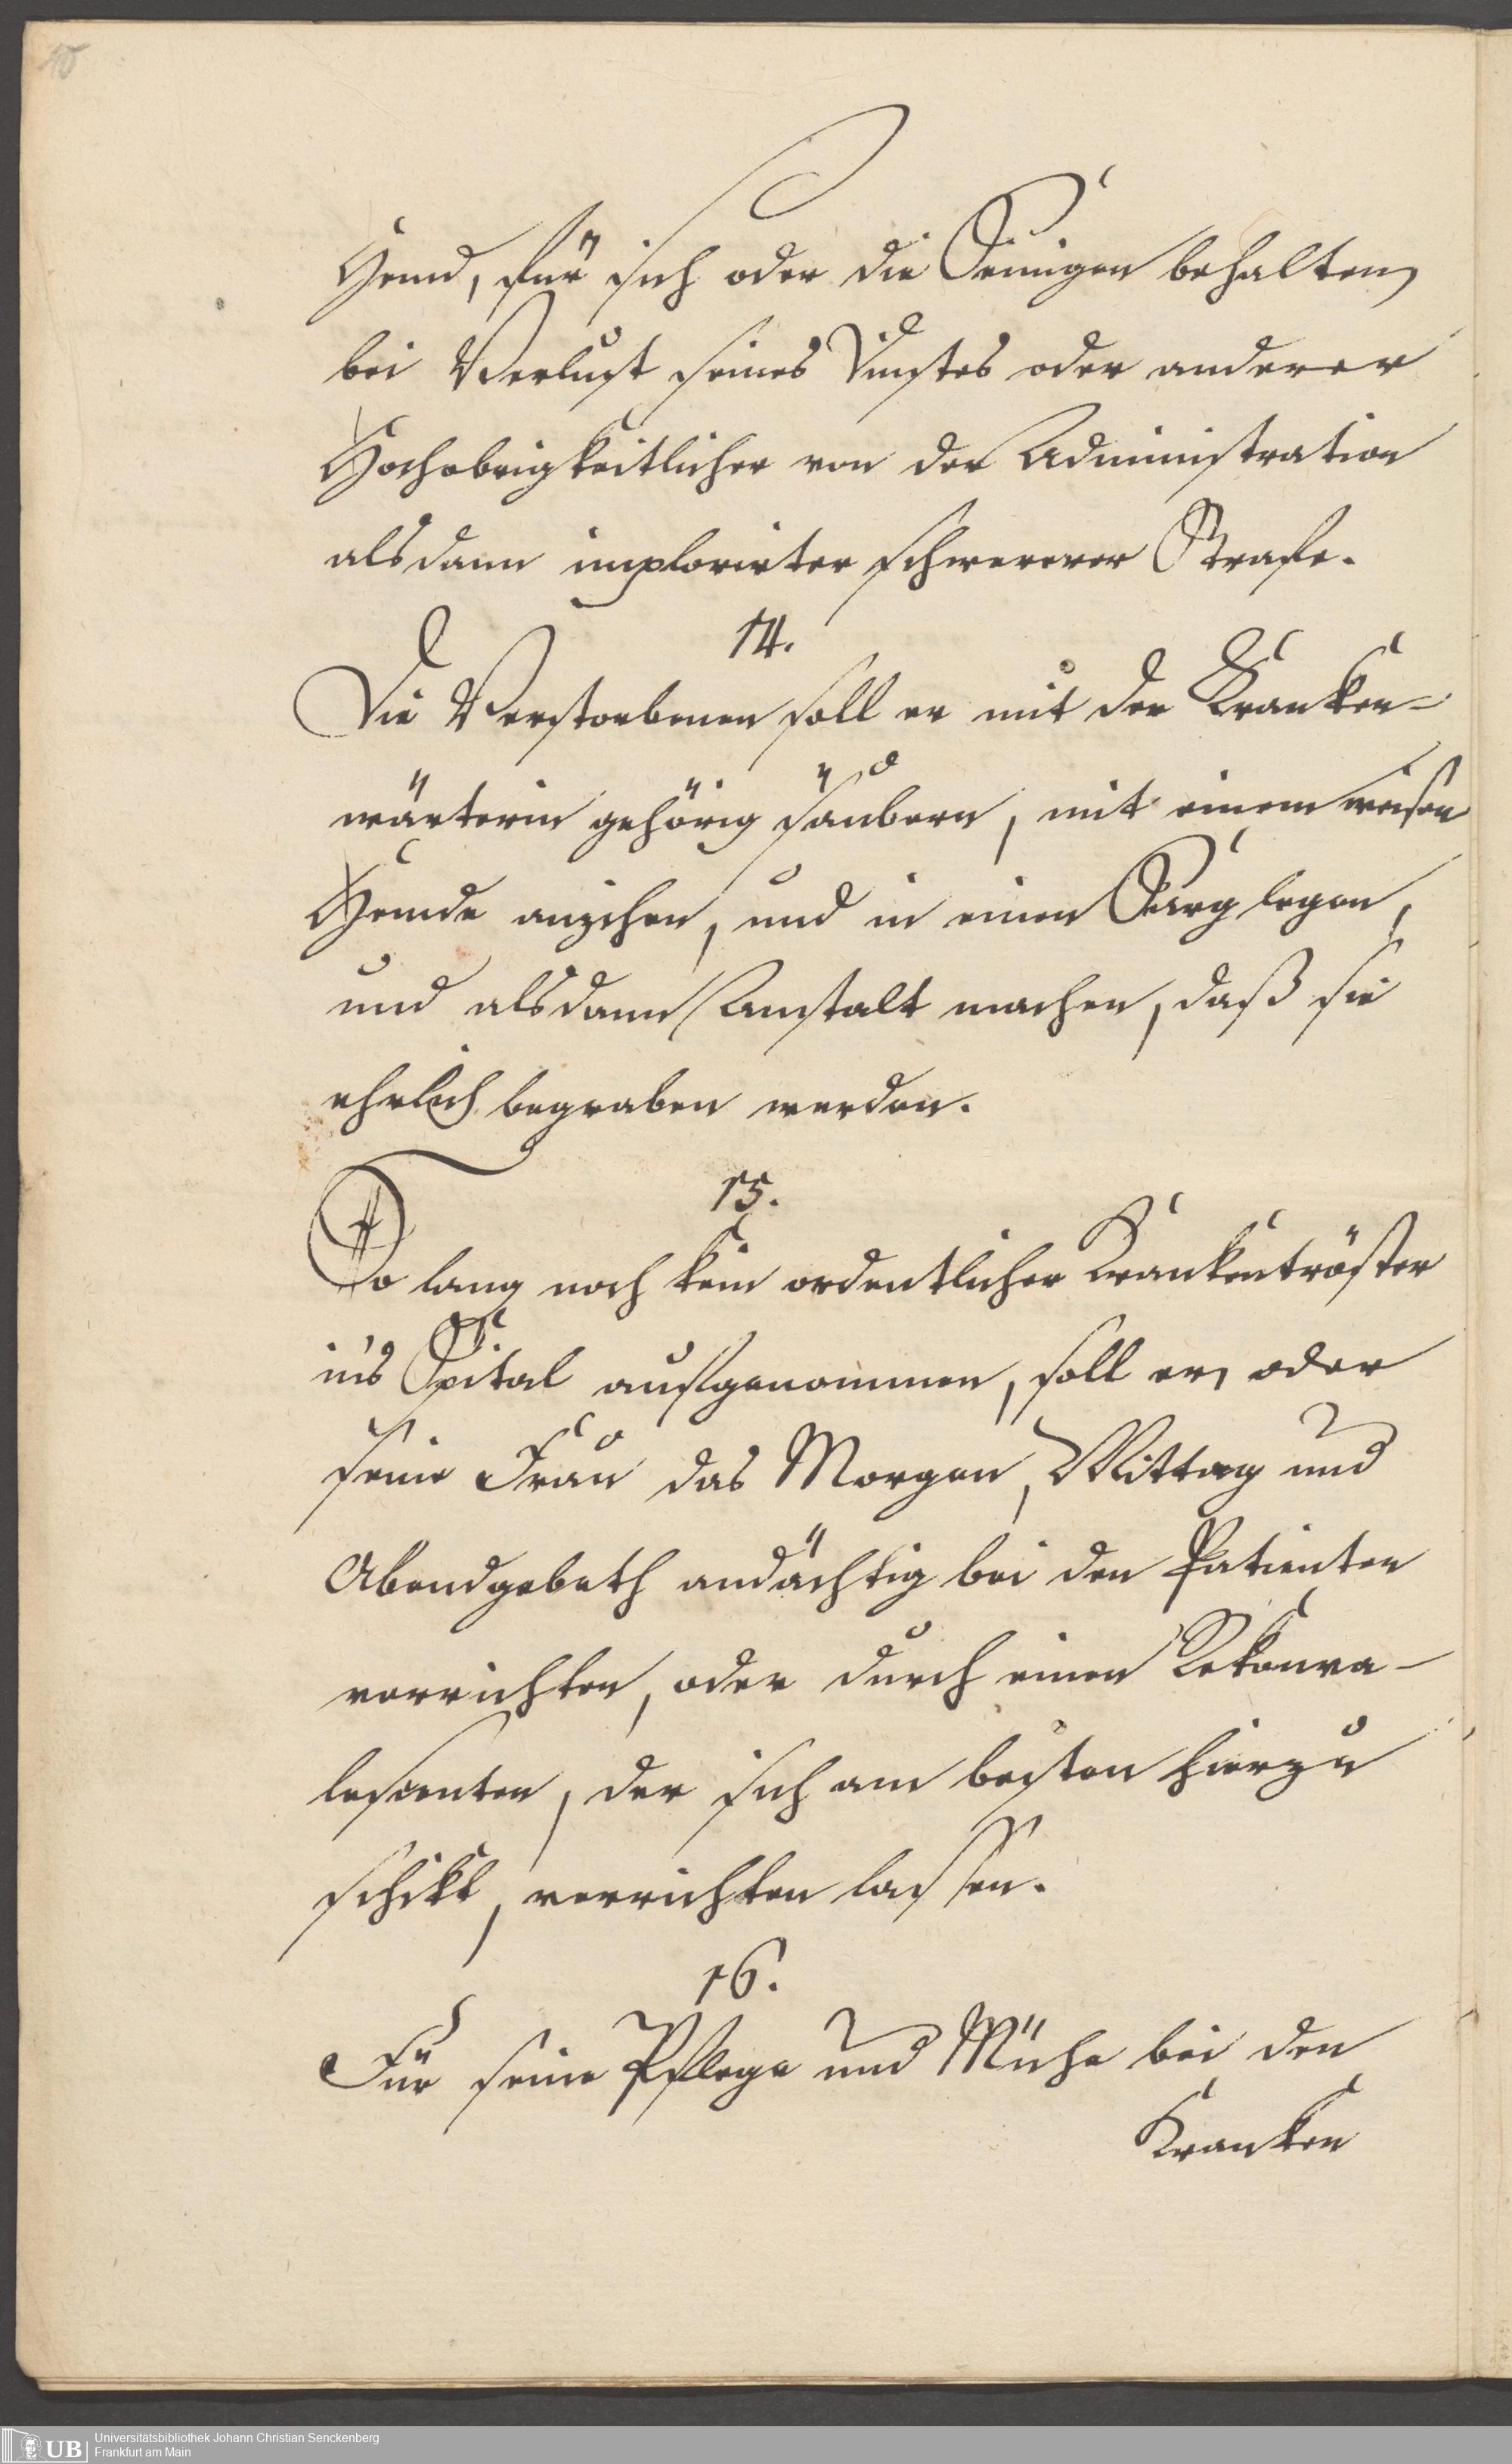 10
Hemd, für sich oder die Seinigen behalten,
bei Verlust seines Dinstes oder anderer
Hochobrigkeitlicher von der Administration
alsdann implorirter schwererer Strafe.
14.
Die Verstorbenen soll er mit der Kranken-
wärterin gehörig säubern, mit einem weisen
Hemde anziehen, und in einen Sarg legen,
und alsdann Anstalt machen, daß sie
ehrlich begraben werden.
15.
So lang noch kein ordentlicher Krankentröster
in's Spital aufgenommen, soll er, oder
seine Frau das Morgen, Mittag und
Abendgebeth andächtig bei den Patienten
verrichten, oder durch einen Rekonva-
lescenten, der sich am besten hierzu
schikt, verrichten lassen.
16.
Für seine Pflege und Mühe bei den
Kranken
UB
Universitätsbibliothek Johann Christian Senckenberg
Frankfurt am Main